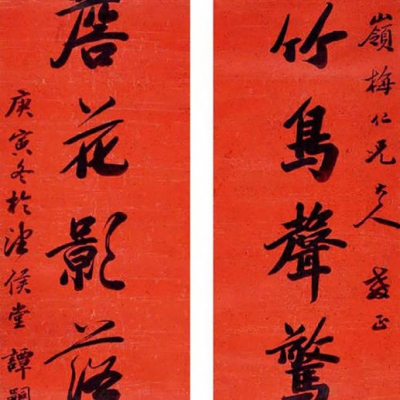 嶺梅仁兄大人 教正
竹鳥聲驚
花影落
庚寅冬於望侯堂 譚嗣